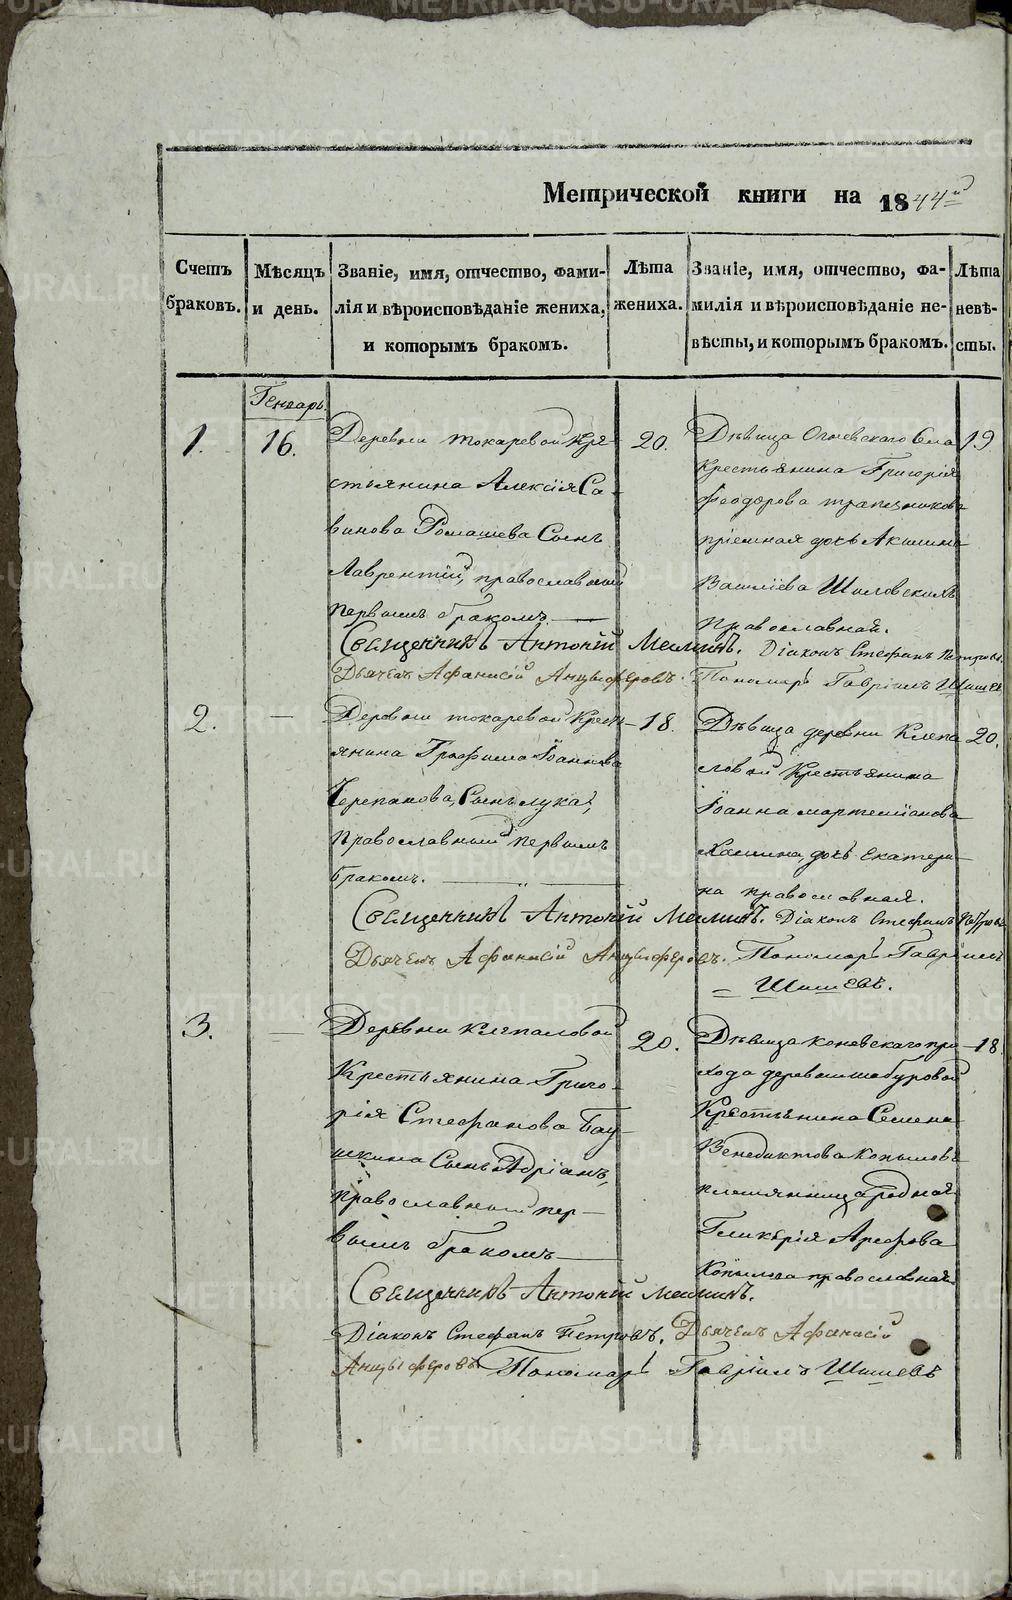 Метрической книги на 1844й
Счетъ браковъ.
Мѣсяцъ и день.
Званіе, имя, отчество, фами-
лія и вѣроисповѣданіе жениха,
и которымъ бракомъ.
Лѣта жениха.
Званіе, имя, отчество, фа-
милія и вѣроисповѣданіе не-
вѣсты, и которымъ бракомъ.
Лѣта невѣ-
сты.
Генварь.
1.
16.
Деревни токаревой Кре-
стьянина Алексія Са-
винова Ромашева Сынъ
Лаврентій, православный
первымъ бракомъ.
20.
Дѣвица Огневскаго Села
Крестьянина Григорія
Феодорова трапезникова
пріемная дочь Акилина
Василіева
Православная.
19
Священникъ Антоній Меминъ. Діаконъ Стефанъ Петровъ.
Дьячекъ Афанасій Анцыферовъ. Пономарь Гавріилъ Шишевъ
2.
Деревни токаревой Кресть-
янина Трофима Іоаннова
Черепанова, Сынъ лука,
Православный первымъ
бракомъ.
18.
Дѣвица деревни Клепа
ловой Крестьянина
Іоанна мартеміанова
дочь Екатери-
на православная.
20.
Священникъ Антоній Меминъ. Діаконъ Стефанъ Петровъ
Дьячекъ Афанасій Анцыферовъ. Пономарь Гавріилъ
Шишевъ.
3.
Деревни клепаловой
Крестьянина Григо-
рія Стефанова Бау-
шкина Сынъ Адріанъ,
православный пер-
вымъ бракомъ
20.
Дѣвица коневскаго при-
хода деревни шабуровой
Крестьянина Семена
Венедиктова Копылова
племянница родная
Гликерія Арефова
Копылова православная.
18.
Священникъ Антоній Меминъ.
Діаконъ Стефанъ Петровъ. Дьячекъ Афанасій
Анцыферовъ Пономарь Гавріилъ Шишевъ
METRIKI.GASO-URAL.RU